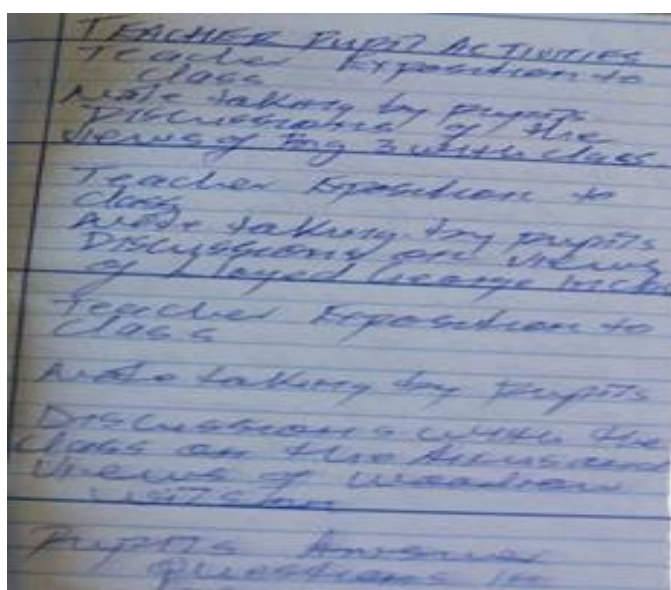 TEACHER PUPIL ACTIVITIES
Teacher Exposition to
class
Note taking by pupils
Discussions of the
views of Big 3 with class
Teacher Exposition to
class
Note taking by pupils
Discussions on views
of Lloyed George
Teacher Exposition to
class
Note taking by pupils
Discussions with the
class on the
views of Woodrow
Wilson
Pupils Answer
questions in